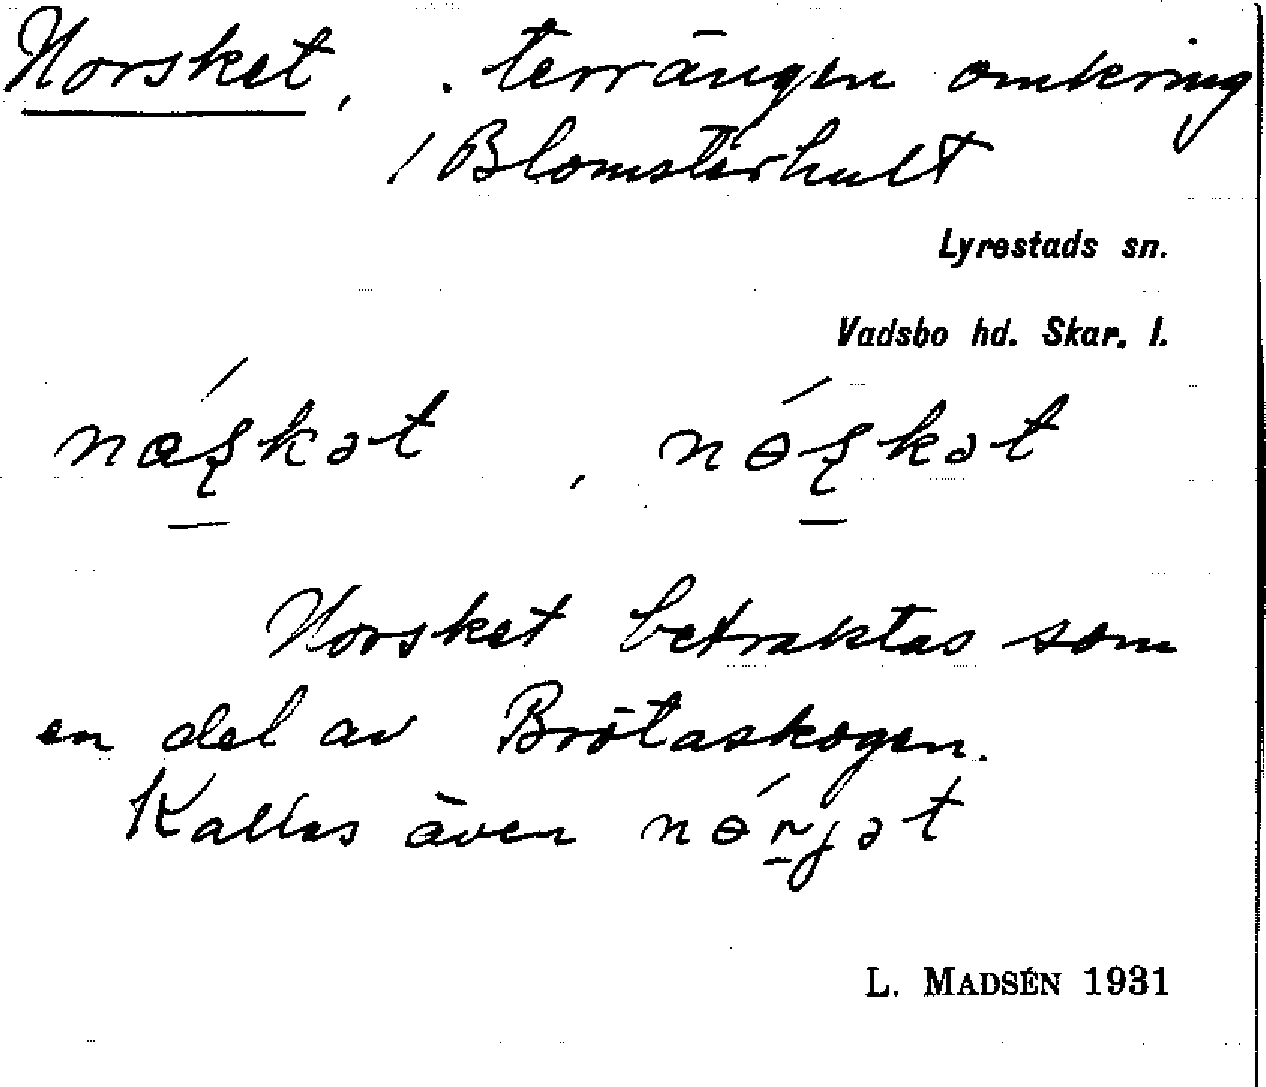 Norsket, . terrängen omkring
/ Blomsterhult
Lyrestads sn.
Vadsbo hd. Skar. l.
næ̀ʂkət , nɵ́ʂkət
Norsket betraktas som
en del av Brötaskogen.
Kallas även nɵ́rjət
L. MADSÉN 1931